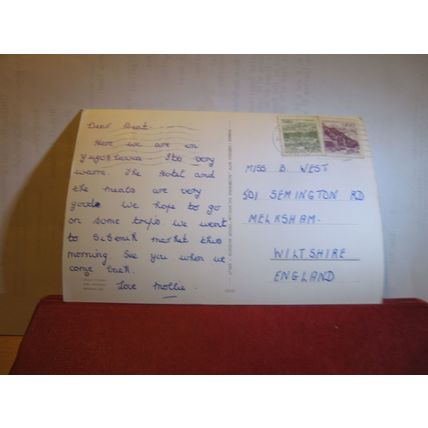 Dear Beat.
Here we are on
Yugoslavia Its very
warm. The Hotel and
the meals are very
good. We hope to go
on some trips we went
to Sibenik market this
morning See you when we
come back.
Love Mollie.
MISS B. WEST
501 SEMINGTON RD
MELKSHAM.
WILTSHIRE
ENGLAND